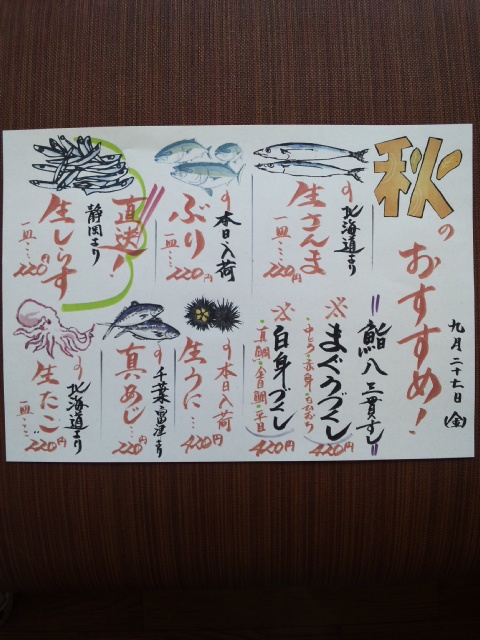 秋のおすすめ！
九月二十七日(金)
北海道より
生さんま
一皿…220円
本日入荷
ぶり
一皿…220円
直送！
静岡より
生しらす
一皿…220円
〃鮨八三貫ずし〃
※まぐろづくし
中とろ・赤身・
420円
※白身づくし
真鯛・金目鯛・平目
420円
本日入荷
生うに…
420円
千葉・富津より
真あじ…
220円
北海道より
生たこ
一皿…220円